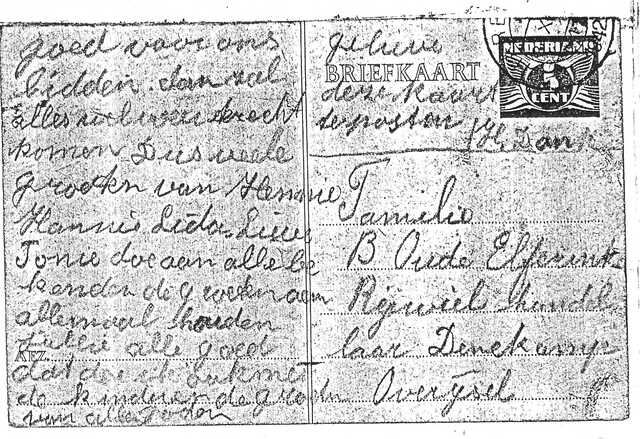 goed voor ons
bidden. dan zal
alles wel weer terecht
komen Dus vele
groeten van Hennie
Hannie Lida. Sinie
Tonie doe aan alle be
kenden de groeten aan
allemaal houden
jullie alle goed
dat doe ik ook met
de kinderen de groeten
van alle
gelieve
BRIEFKAART
deze kaart
te posten
H. Dank
NEDERLAND
5
CENT
Familie
B Oude Elferink
Rijwiel handel
laar Denekamp
Overijsel
AFZ.